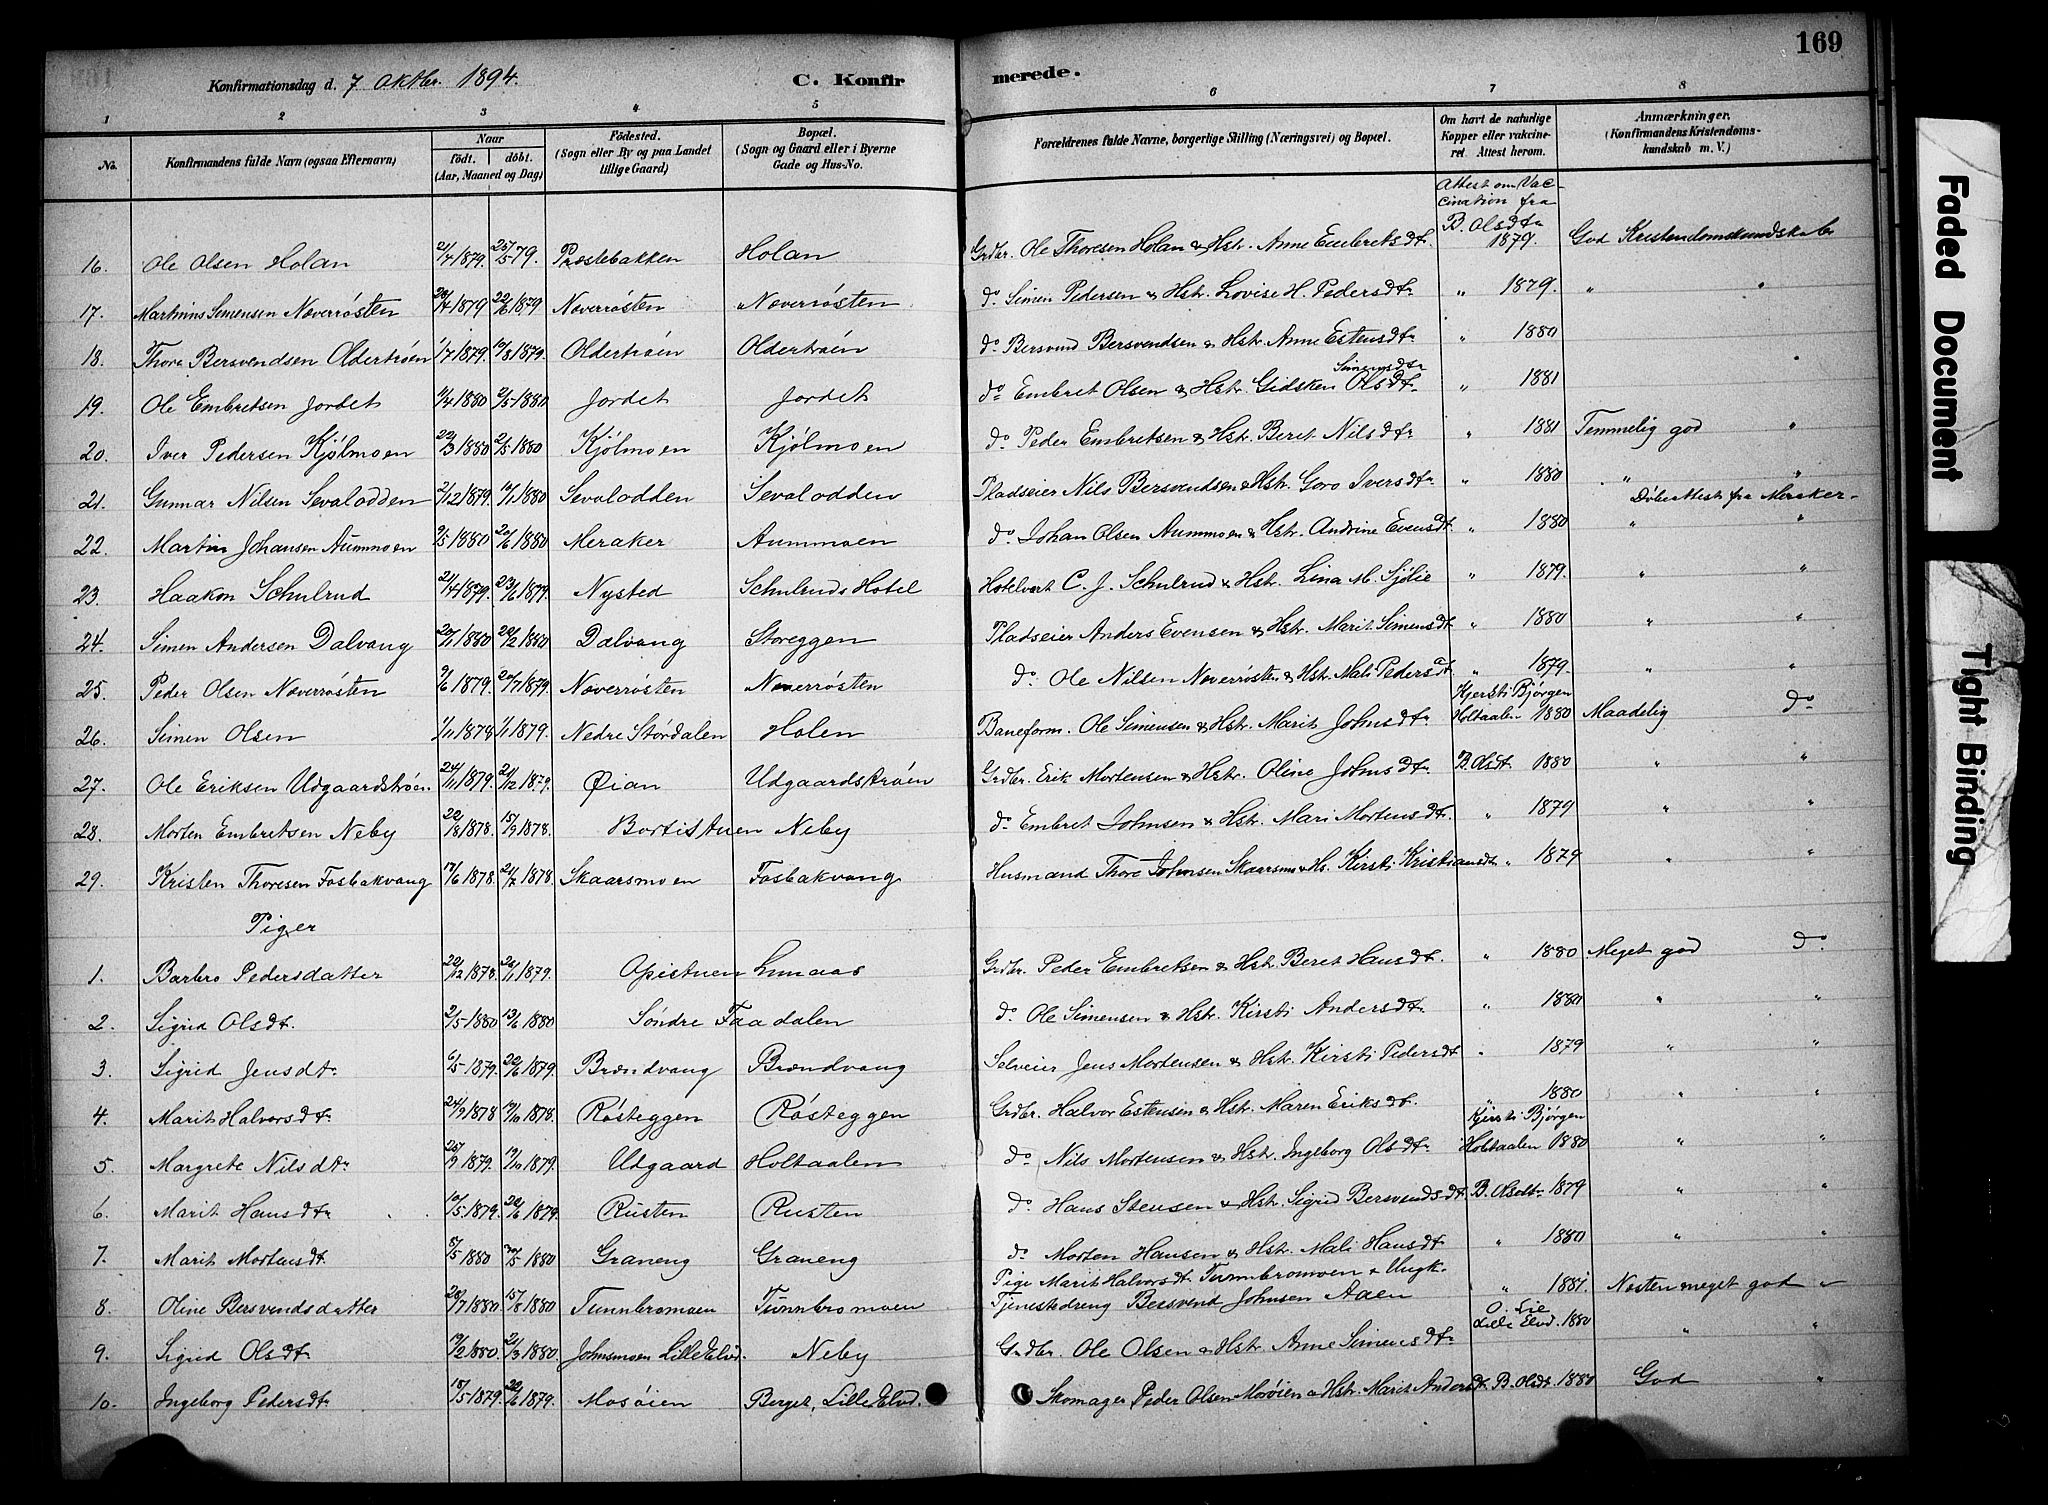 169
Konfirmationsdag d. 7 Oktbr. 1894. C. Konfirmerede.
1 2 3 4 5 6 7 8
No. Konfirmandens fulde Navn (ogsaa Efternavn) Naar født. døbt. (Aar, Maaned og Dag) Fødested. (Sogn eller By og paa Landet tillige Gaard) Bopæl. (Sogn og Gaard eller i Byerne Gade og Hus-No. Forældrenes fulde Navne, borgerlige Stilling (Næringsvei) og Bopæl. Om havt de naturlige Kopper eller vakcineret. Attest herom. Anmærkninger. (Konfirmandens Kristendomskundskab m. V.)
Attest om Vaccination fra
16. Ole Olsen Holan 21/4 1879. 25/5 79. Præstebakken Holan Grdbr. Ole Thoresen Holan & Hstr. Anne Embretsdtr. B. Olsdtr 1879. God Kristendomskundskab
17. Martinus Simensen Næverrøsten 28/4 1879 22/6 1879 Næverrøsten Næverrøsten do Simen Pedersen & Hstr. Lovise H. Pedersdtr " 1879. " "
18. Thore Bersvendsen Oldertrøen 1/7 1879. 10/8 1879. Oldertrøen Oldertrøen do Bersvend Bersvendsen & Hstr. Anne Estensdtr " 1880 "
19. Ole Embretsen Jordet 4/4 1880 2/5 1880 Jordet Jordet do Embret Olsen & Hstr. Gidsken Olsdtr. Simensdtr " 1881
20. Iver Pedersen Kjølmoen 22/3 1880 2/5 1880 Kjølmoen Kjølmoen do Peder Embretsen & Hstr. Beret Nilsdtr " 1881 Temmelig god "
21. Gunnar Nilsen Sevalodden 2/12 1879. 19/1 1880 Sevalodden Sevalodden Pladseier Nils Bersvendsen & Hstr. Goro Iversdtr " 1880 " "
Døbeattest fra Meraker
22. Martin Johansen Aummoen 9/5 1880 20/6 1880 Meraker Aummoen do Johan Olsen Aummoen & Hstr. Andrine Evensdt. " 1880 " "
23. Haakon Schulrud 21/4 1879. 23/6 1879. Nysted Schulruds Hotel Hotelvært C. J. Schulrud & Hstr. Lina M. Sjølie " 1879. " "
24. Simen Andersen Dalvang 20/1 1880 29/2 1880 Dalvang Storeggen Pladseier Anders Evensen & Hstr. Marit Simensdt " 1880 " "
25. Peder Olsen Næverrøsten 9/6 1879. 20/7 1879. Næverrøsten Næverrøsten do Ole Nilsen Næverrøsten & Hstr. Mali Pedersdt " 1879. " "
26. Simen Olsen 1/11 1878 1/1 1879. Nedre Størdalen Holen Baneform. Ole Simensen & Hstr. Marit Johnsdtr Kjersti Bjørgen Holtaalen 1880 Maadelig do
27. Ole Eriksen Udgaardstrøen. 24/11 1879. 21/12 1879. Øian Udgaardstrøen Grdbr. Erik Mortensen & Hstr. Oline Johnsdtr. B. Olsdt. 1880 " "
28. Morten Embretsen Neby 22/8 1878. 15/9 1878. Bortistuen Neby do Embret Johnsen & Hstr. Mari Mortensdt. " 1879 " "
29. Kristen Thoresen Fosbakvang 17/6 1878. 21/7 1878. Skaarsmoen Fosbakvang Husmand Thore Johnsen Skaarsmo & Hs. Kirsti Kristiansdt. " 1879 " "
Piger
1. Barbro Pedersdatter 22/12 1878. 26/1 1879. Opistuen Lunaas Grdbr. Peder Embretsen & Hstr. Beret Hansdt. " 1880 Meget god do
2. Sigrid Olsdt. 2/5 1880 13/6 1880 Søndre Faadalen do Ole Simensen & Hstr. Kirsti Andersdtr " 1880 " "
3. Sigrid Jensdtr 6/5 1879. 22/6 1879. Brændvang Brændvang Selveier Jens Mortensen & Hstr. Kirsti Pedersdt " 1879 " "
4. Marit Halvorsdtr 24/9 1878 19/10 1878. Røsteggen Røsteggen Grdbr. Halvor Estensen & Hstr. Maren Eriksdt. " 1880 " "
5. Margrete Nilsdtr 25/9 1879. 19/10 1879. Udgaard Holtaalen do Nils Mortensen & Hstr. Ingeborg Olsdtr Kjersti Bjørgen Holtaalen 1880 " "
6. Marit Hansdtr 10/5 1879. 22/6 1879. Rusten Rusten do Hans Stensen & Hstr. Sigrid Bersvendsdt. B. Olsdtr 1879 " "
7. Marit Mortensdt 8/5 1880 30/5 1880 Graneng Graneng do Morten Hansen & Hstr. Mali Hansdt " 1880 " "
8. Oline Bersvendsdatter 28/7 1880 15/8 1880 Tunnbromoen Tunnbromoen Pige Marit Halvorsdt. Tunnbromoen & Ungk. Tjenestedreng Bersvend Johnsen Aaen " 1881. Næsten meget god "
9. Sigrid Olsdtr 19/2 1880. 21/3 1880. Johnsmoen Lille Elvd. Neby Grdbr. Ole Olsen & Hstr. Anne Simensdtr O. Lie Lille Elvd. 1880 " "
10. Ingeborg Pedersdtr 18/5 1879. 22/6 1879. Mosøien Berget, Lille Elvd. Skomager Peder Olsen Morøien & Hstr. Marit Andersdt. B. Olsdt. 1880 God "
Faded Document
Tight Binding